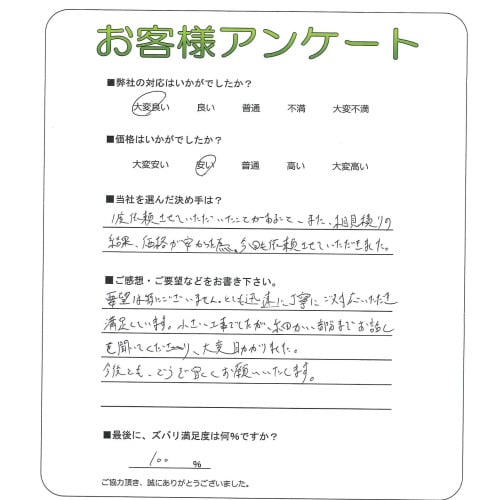 お客様アンケート
■弊社の対応はいかがでしたか？
大変良い 良い 普通 不満 大変不満
■価格はいかがでしたか？
大変安い 安い 普通 高い 大変高い
■当社を選んだ決め手は？
1度依頼させていただいたことがあること、また、相見積りの
結果、価格が安かった為、今回も依頼させていただきました。
■ご感想・ご要望などをお書き下さい。
要望は特にございません。とても迅速に丁寧にご対応いただき
満足しています。小さい工事でしたが、細かい部分までお話し
を聞いてくださり、大変助かりました。
今後とも、どうぞ宜しくお願いいたします。
■最後に、ズバリ満足度は何%ですか？
100 %
ご協力頂き、誠にありがとうございました。